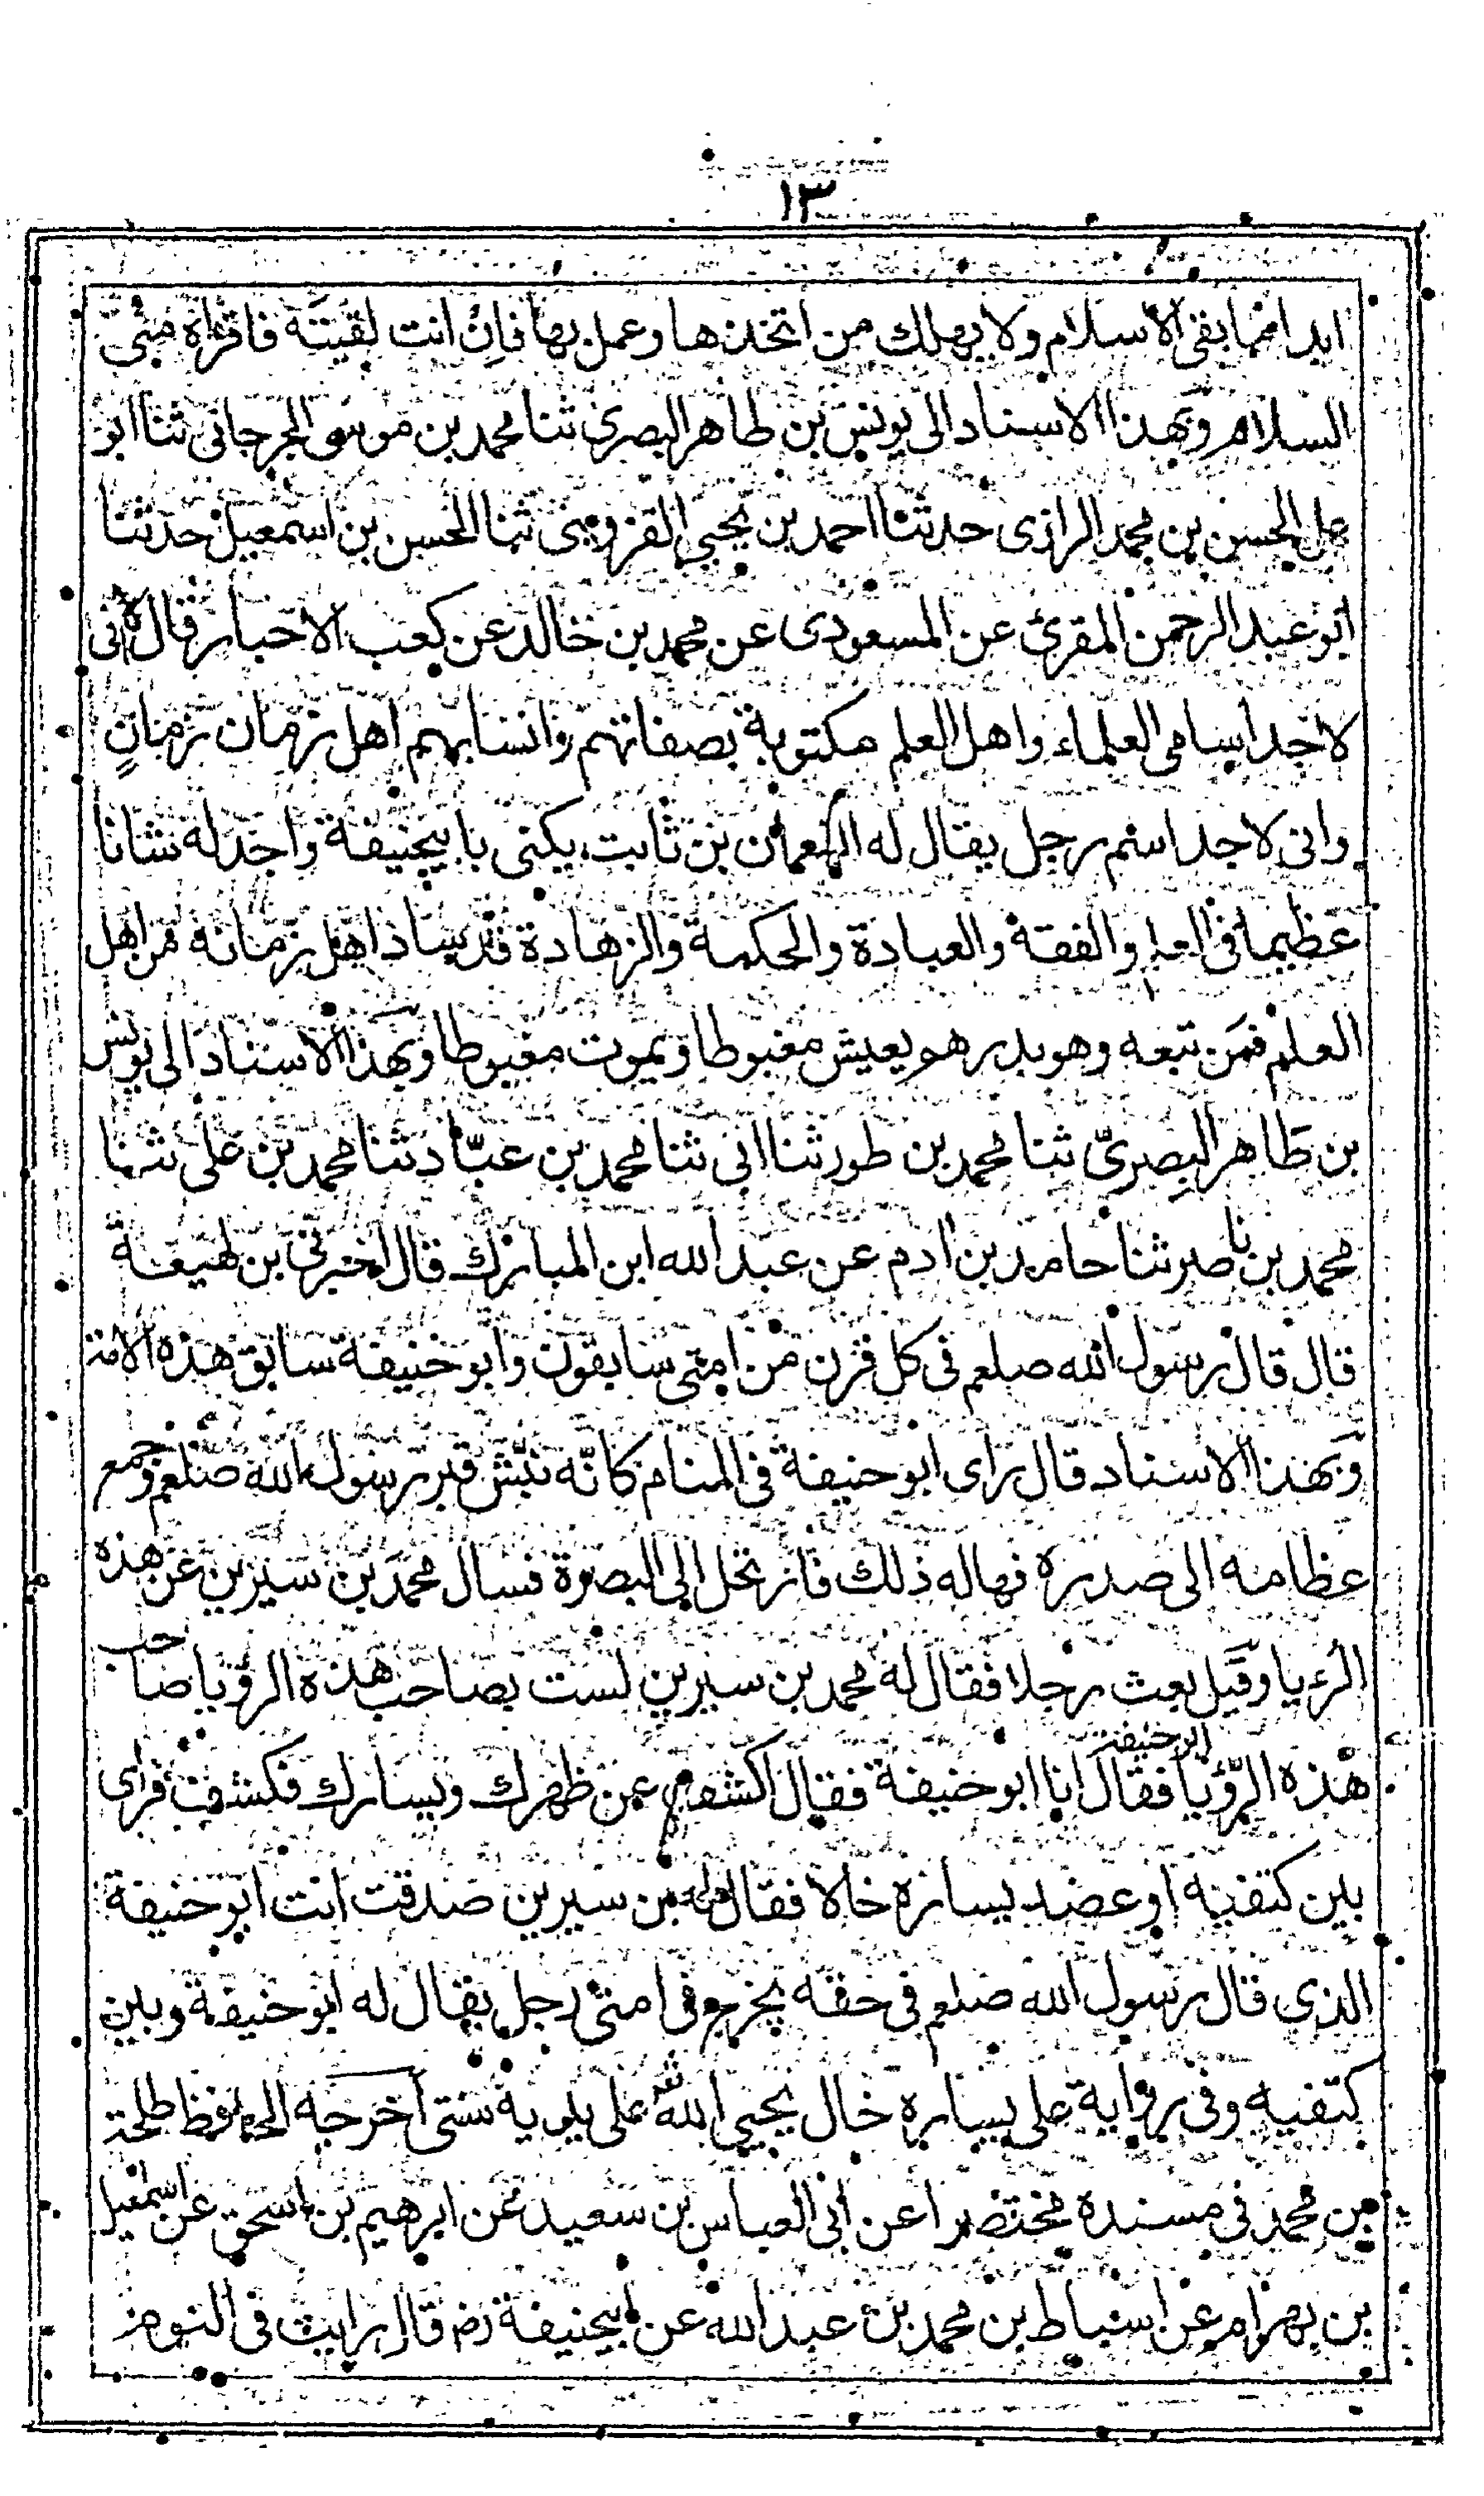 ١٣
ابدا مما بقى الاسلام ولا يهلك من اتخذها وعمل بها فإن انت لقيته فاقراه منى
السلام وبهذا الاسناد الى يونس بن طاهر البصرى ثنا محمد بن موسى الجرجانى ثنا ابو
على الحسن بن محمد الرازى حدثنا احمد بن يحيى القزوينى ثنا الحسن بن اسمعيل حدثنا
ابو عبد الرحمن المقرئ عن المسعودى عن محمد بن خالد عن كعب الاحبار قال انى
لاجد اسامى العلماء واهل العلم مكتوبة بصفاتهم وانسابهم اهل زمان زمانٍ
وانى لاجد اسم رجل يقال له النعمان بن ثابت يكنى بابيحنيفة واجد له شانا
عظيما فى العلم والفقه والعبادة والحكمة والزهادة قد ساد اهل زمانه من اهل
العلم فمن تبعه وهو بدرهم يعيش مغبوطا ويموت مغبوطا وبهذا الاسناد الى يونس
بن طاهر البصرىّ ثنا محمد بن طور ثنا ابى ثنا محمد بن عبّاد ثنا محمد بن على ثنا
محمد بن ناصر ثنا حامد بن ادم عن عبد الله ابن المبارك قال اخبرنى بن لهيعة
قال قال رسول الله صلعم فى كل قرن من امتى سابقون وابو حنيفة سابق هذه الامة
وبهذا الاسناد قال راى ابو حنيفة فى المنام كانّه نبّش قبر رسول الله صلعم وجمع
عظامه الى صدره فهاله ذلك فارتحل الى البصرة فسال محمد بن سيرين عن هذه
الرءيا وقيل بعث رجلا فقال له محمد بن سيرين لست بصاحب هذه الرؤيا صاحب
هذه الرّؤيا ابو حنيفة فقال انا ابو حنيفة فقال اكشف عن ظهرك ويسارك فكشف فراى
بين كتفيه او عضد يساره خالا فقال له بن سيرين صدقت انت ابو حنيفة
الذى قال رسول الله صلعم فى حقه يخرج فى امتى رجل يقال له ابو حنيفة وبين
كتفيه وفى رواية على يساره خال يحيى الله على يديه سنتى اخرجه الحافظ طلحة
بن محمد فى مسنده مختصرا عن ابى العباس بن سعيد عن ابرهيم بن اسحق عن اسمعيل
بن بهرام عن اسباط بن محمد بن عبد الله عن ابيحنيفة رض قال رايت فى النوم